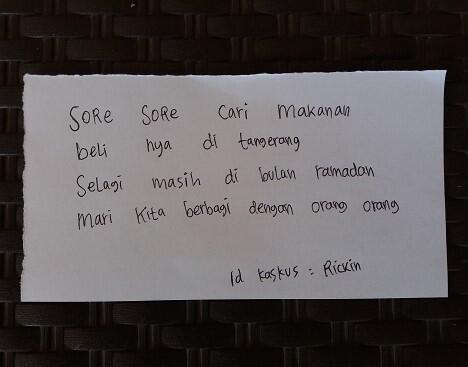 SORE SORE Cari Makanan
beli nya di tangerang
Selagi masih di bulan ramadan
Mari Kita berbagi dengan orang orang
Id kaskus : Rickin